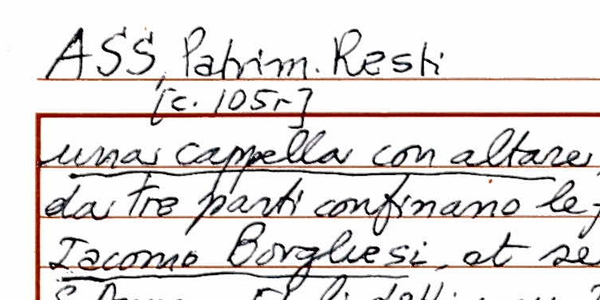 ASS, Patrim. Resti
[c. 105r]
una cappella con altare,
da tre parti confinano le
Iacomo Borghesi, et se